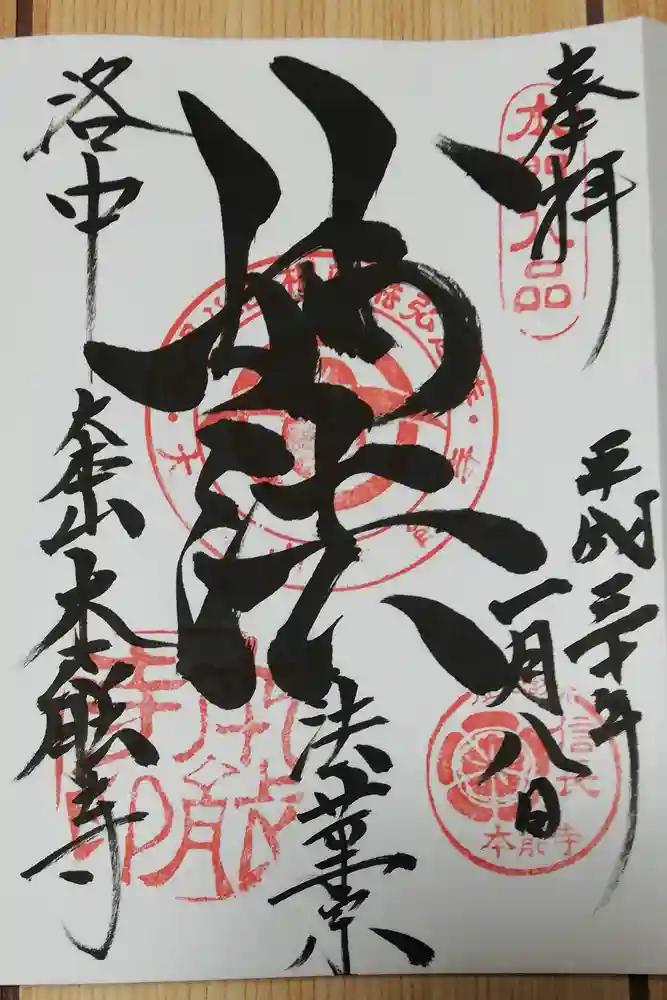 奉拝
本門八品
平成三十年
一月八日
信長
本能寺
妙法
法華宗
洛中
大本山本能寺
本能寺印